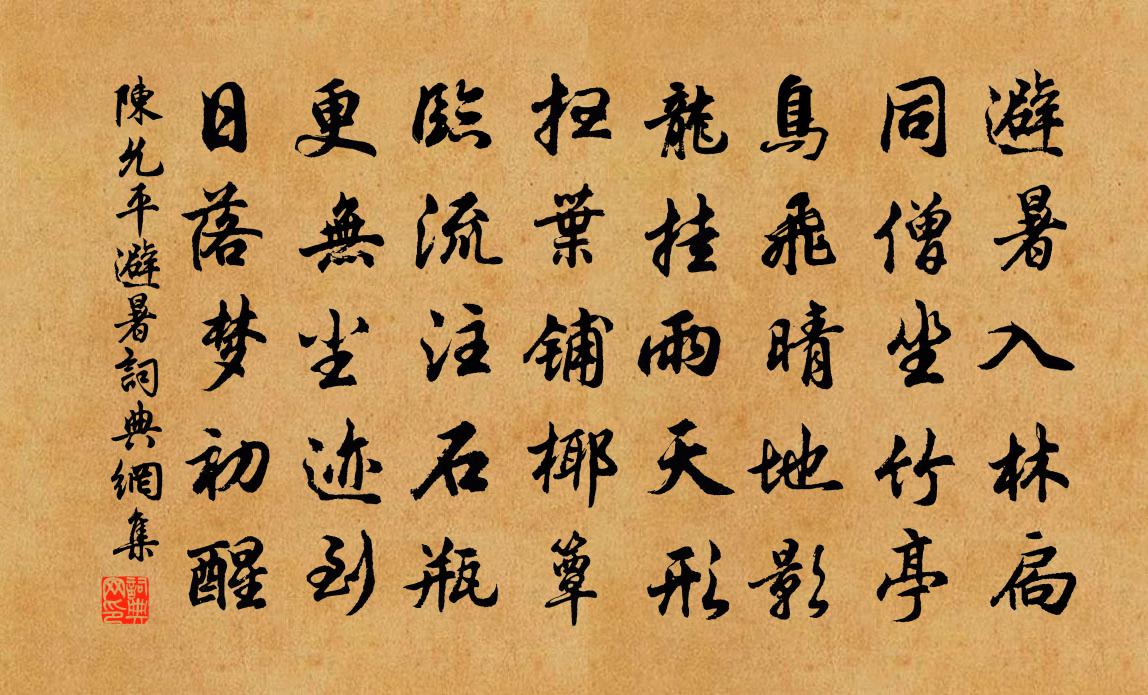 避暑入林扃
同僧坐竹亭
鳥飛晴地影
龍挂雨天形
葉鋪椰簟
臨流注石瓶
更無尘迹到
日落梦初醒
陳允平避暑詞典網集
詞典
网印